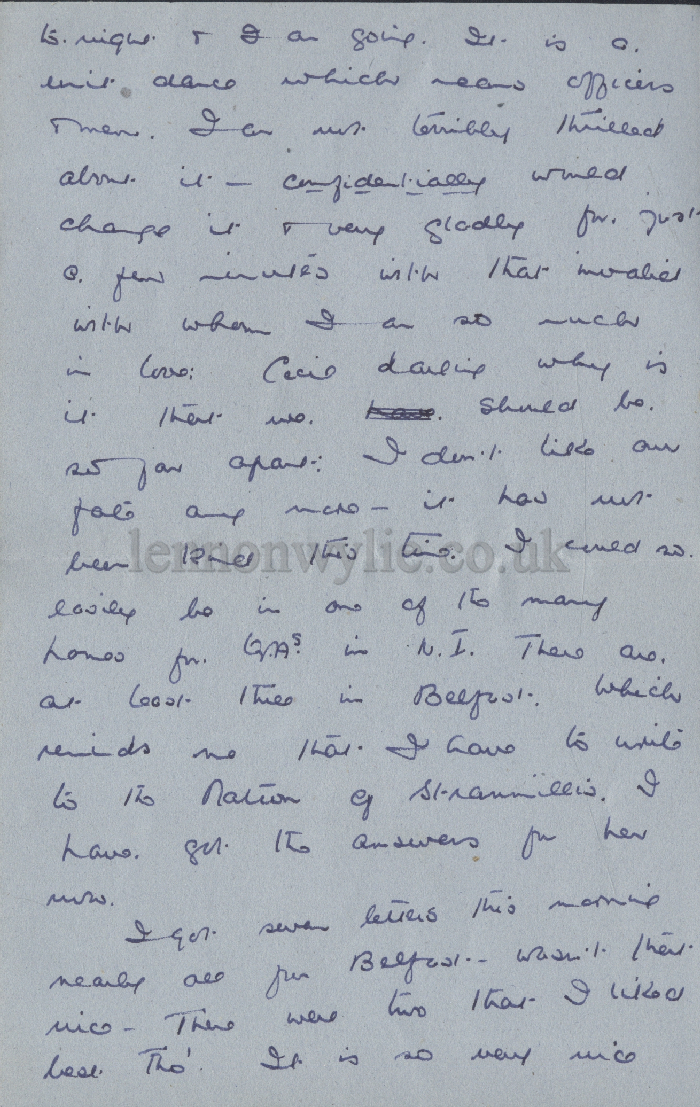 to-night & I am going. It is a
unit dance which means officers
& men. I am not terribly thrilled
about it – confidentially would
change it & very gladly for just
a few minutes with that invalid
with whom I am so much
in love: Cecil darling why is
it that we have should be
so far apart: I don't like our
fate any more – it has not
been kind this time. I could so
easily be in one of the many
homes for QAs. in N.I. There are
at least three in Belfast. Which
reminds me that I have to write
to the Matron of Stranmillis. I
have got the answers for her
now.
I got seven letters this morning
nearly all from Belfast – wasn't that
nice – There were two that I liked
best tho'. It is so very nice
lennonwylie.co.uk